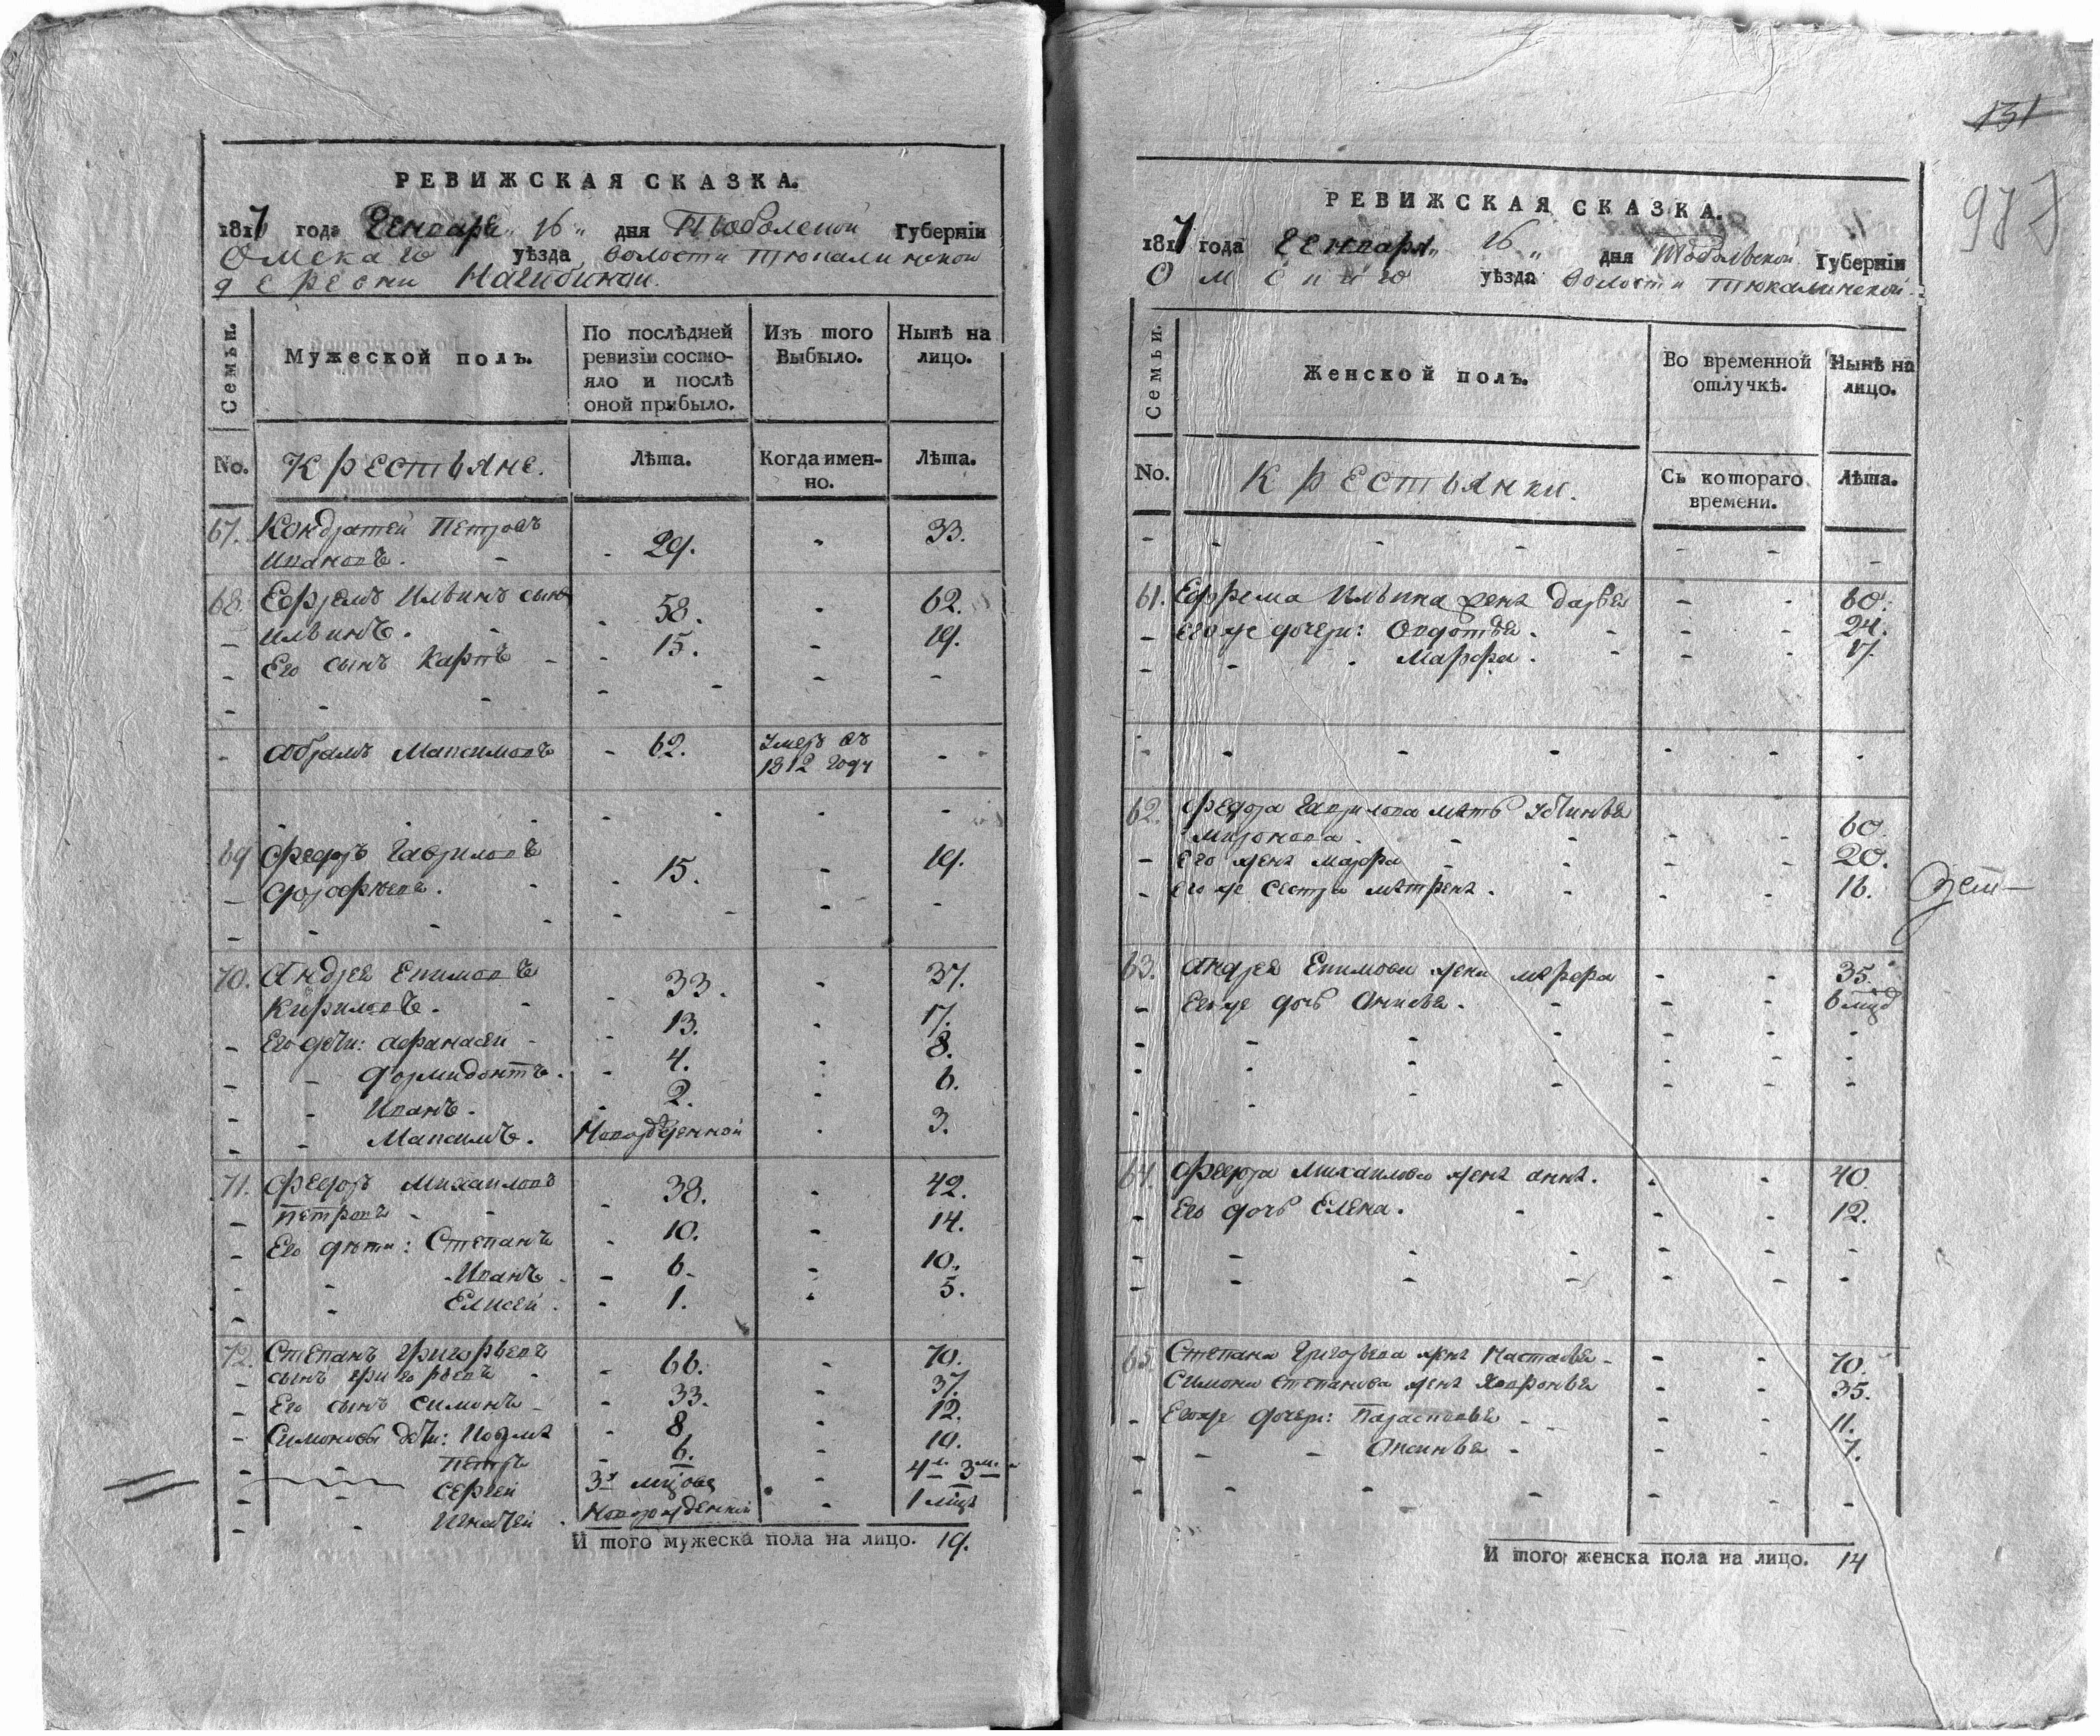 РЕВИЖСКАЯ СКАЗКА.
1817 года Генваря 16 дня Тобольской Губернїи
Омскаго уѣзда волости Тюкалинской
деревни Нагибиной.
Семьи.
Мужеской полъ.
По послѣдней ревизїи состояло и послѣ оной прибыло.
Изъ того Выбыло.
Нынѣ на лицо.
No.
Крестьяне.
Лѣта.
Когда именно.
Лѣта.
67. Кондратей Петровъ
Ивановъ. 29. 33.
68. Ефремъ Ильинъ сынъ
Ильинъ. 58. 62.
Его сынъ Карпъ 15. 19.
Абрамъ Максимовъ 62. Умеръ въ 1812 году
69 Федоръ Гавриловъ
15. 19.
70. Андрей Екимовъ
Кириловъ. 33. 37.
Его дѣти: Афанасей 13. 17.
Формидонтъ. 4. 8.
Иванъ. 2. 6.
Максимъ. Новорожденной 3.
71. Федоръ Михаиловъ
Петровъ 38. 42.
Его дѣти: Степанъ 10. 14.
Иванъ 6. 10.
Елисей. 1. 5.
72. Степанъ Григорьевъ
сынъ Григорьевъ 66. 70.
Его сынъ Симонъ 33. 37.
Симоновы дѣти: 8 12.
Петръ 6. 10.
Сергей 3х мцовъ 4 л. 3 м.
Игнатей. Новорожденный 1 мцъ
И того мужеска пола на лицо. 19.
131
977
РЕВИЖСКАЯ СКАЗКА.
1817 года Генваря 16 дня Тобольской Губернїи
Омскаго уѣзда волости Тюкалинской
Семьи.
Женской полъ.
Во временной отлучкѣ.
Нынѣ на лицо.
No.
Крестьянки.
Съ котораго времени.
Лѣта.
61. Ефрема Ильина жена Дарья 60.
Его же дочери: Овдотья. 24.
Марфа. 17.
62. Федора Гаврилова мать Устинья
Миронова. 60.
Его жена Марфа 20.
Его же сестра Матрена. 16.
63. Андрея Екимова жена Марфа 35.
Его же дочь Анисья. 6
64. Федора Михаилова жена Анна. 40
Его дочь Елена. 12.
65 Степана Григорьева жена Настасья 70.
Симона Степанова жена Хавронья 35.
Его же дочери: Парасковья 11.
Аксинья 7.
И того женска пола на лицо. 14